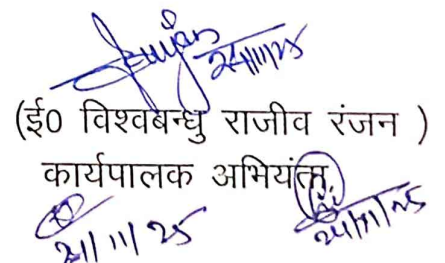 24/11/25
(ई0 विश्वबन्धु राजीव रंजन )
कार्यपालक अभियंता
24/11/25